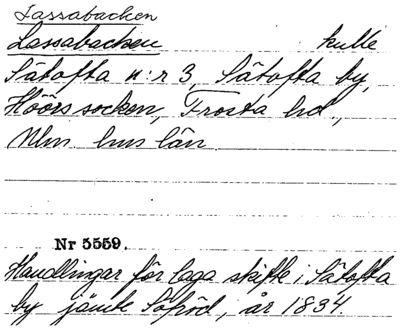 Lassabacken
Lassabacken kulle
Sätofta n:r 3, Sätofta by,
Höörs socken, Frosta hd.,
Mlm hus län.
Nr 5559.
Handlingar för laga skifte i Sätofta
by jämte Sofröd, år 1834.